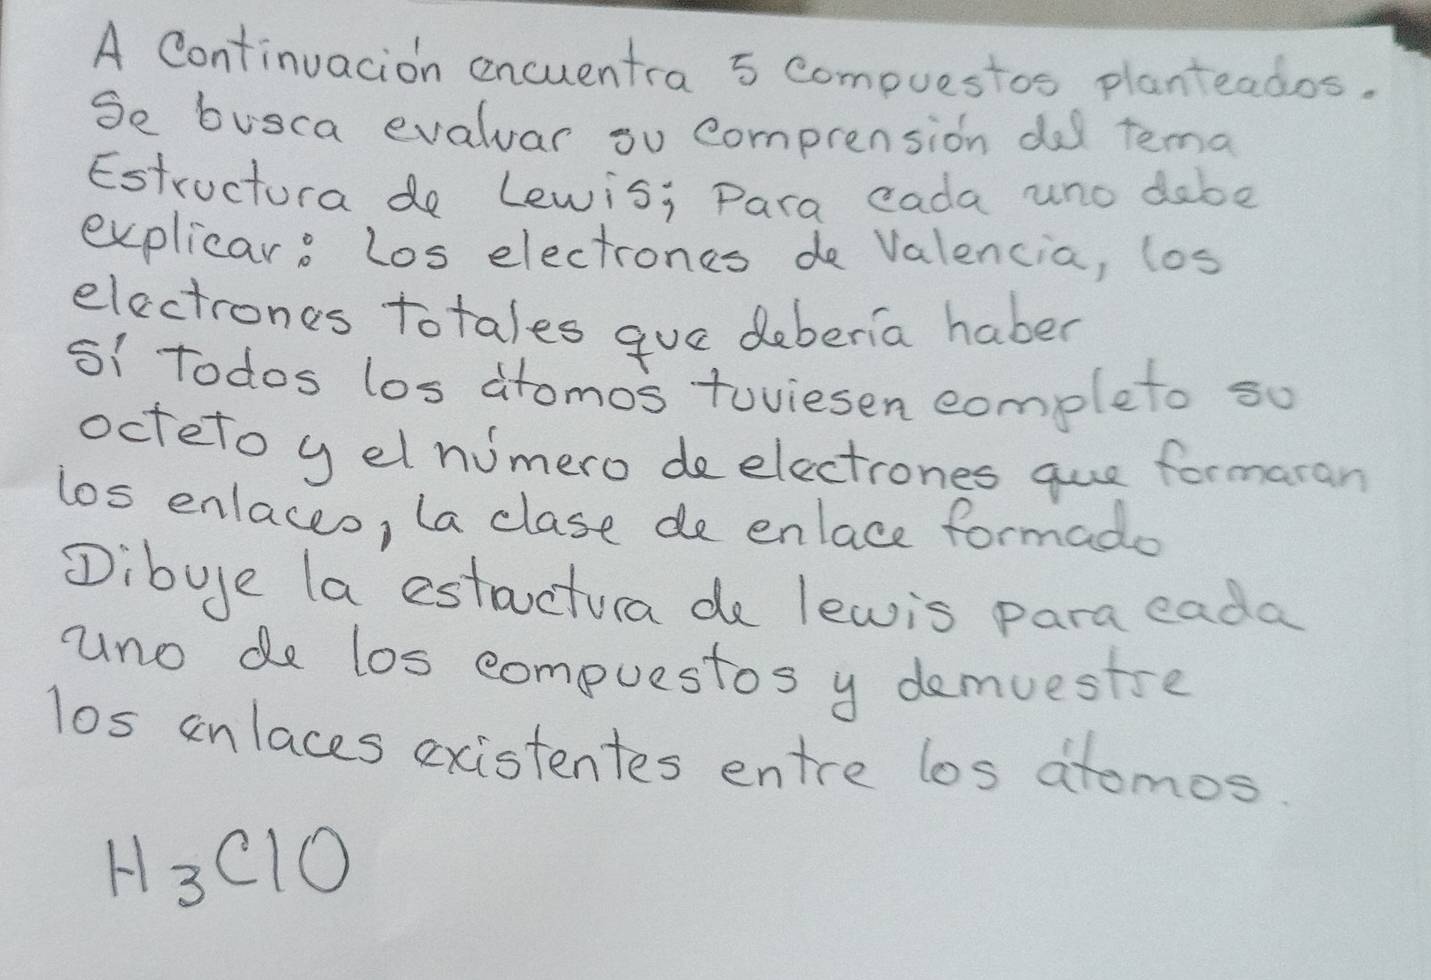 A Continuación encuentra 5 compuestos planteados.
Se busca evaluar su comprensión del tema
Estructura de Lewis; Para cada uno debe
explicar: Los electrones de Valencia, los
electrones totales que debería haber
sí todos los átomos tuviesen completo su
octeto y el número de electrones que formaran
los enlaces, la clase de enlace formado
Dibuje la estructura de lewis para cada
uno de los compuestos y demuestre
los enlaces existentes entre los átomos.
H₃ClO